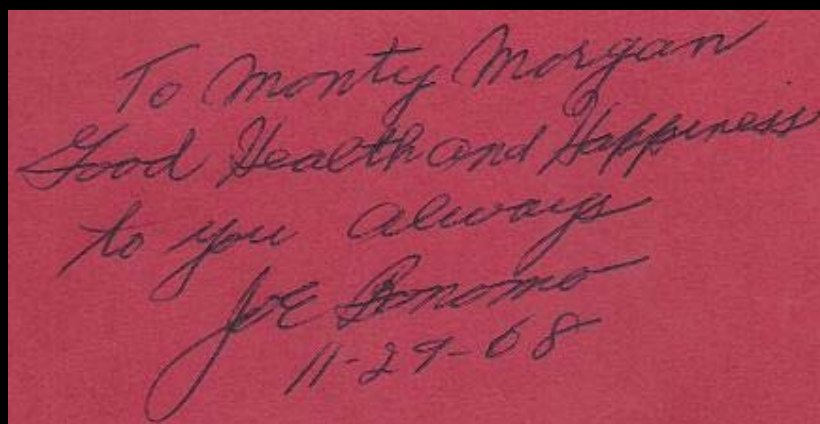 To Monty Morgan
Good Health and Happiness
to you always
Joe Bonomo
11-29-68